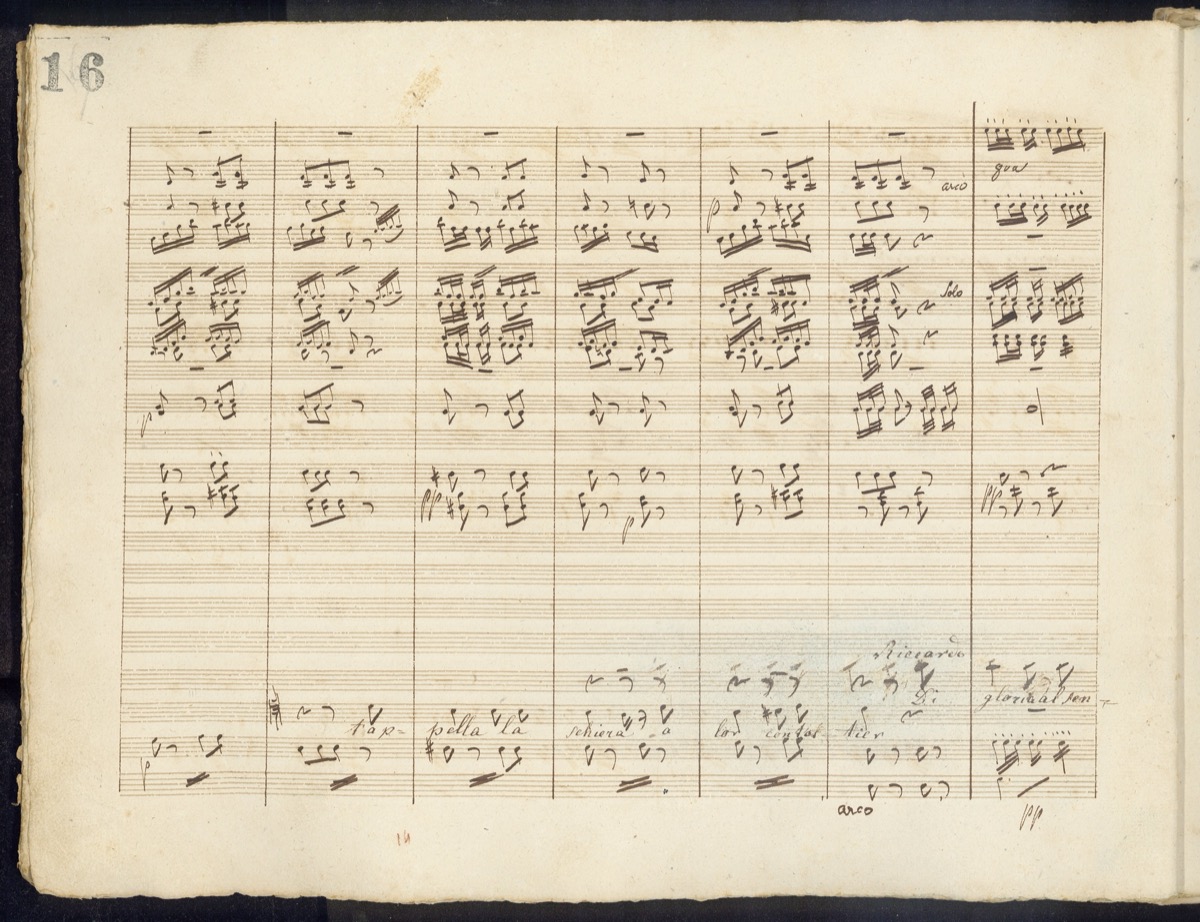 16
arco
8va
p
Solo
p
pp
pp
p
Riccardo
Di
gloria al sen-
t'ap-
pella la
schiera a
lor
tier
p
arco
pp